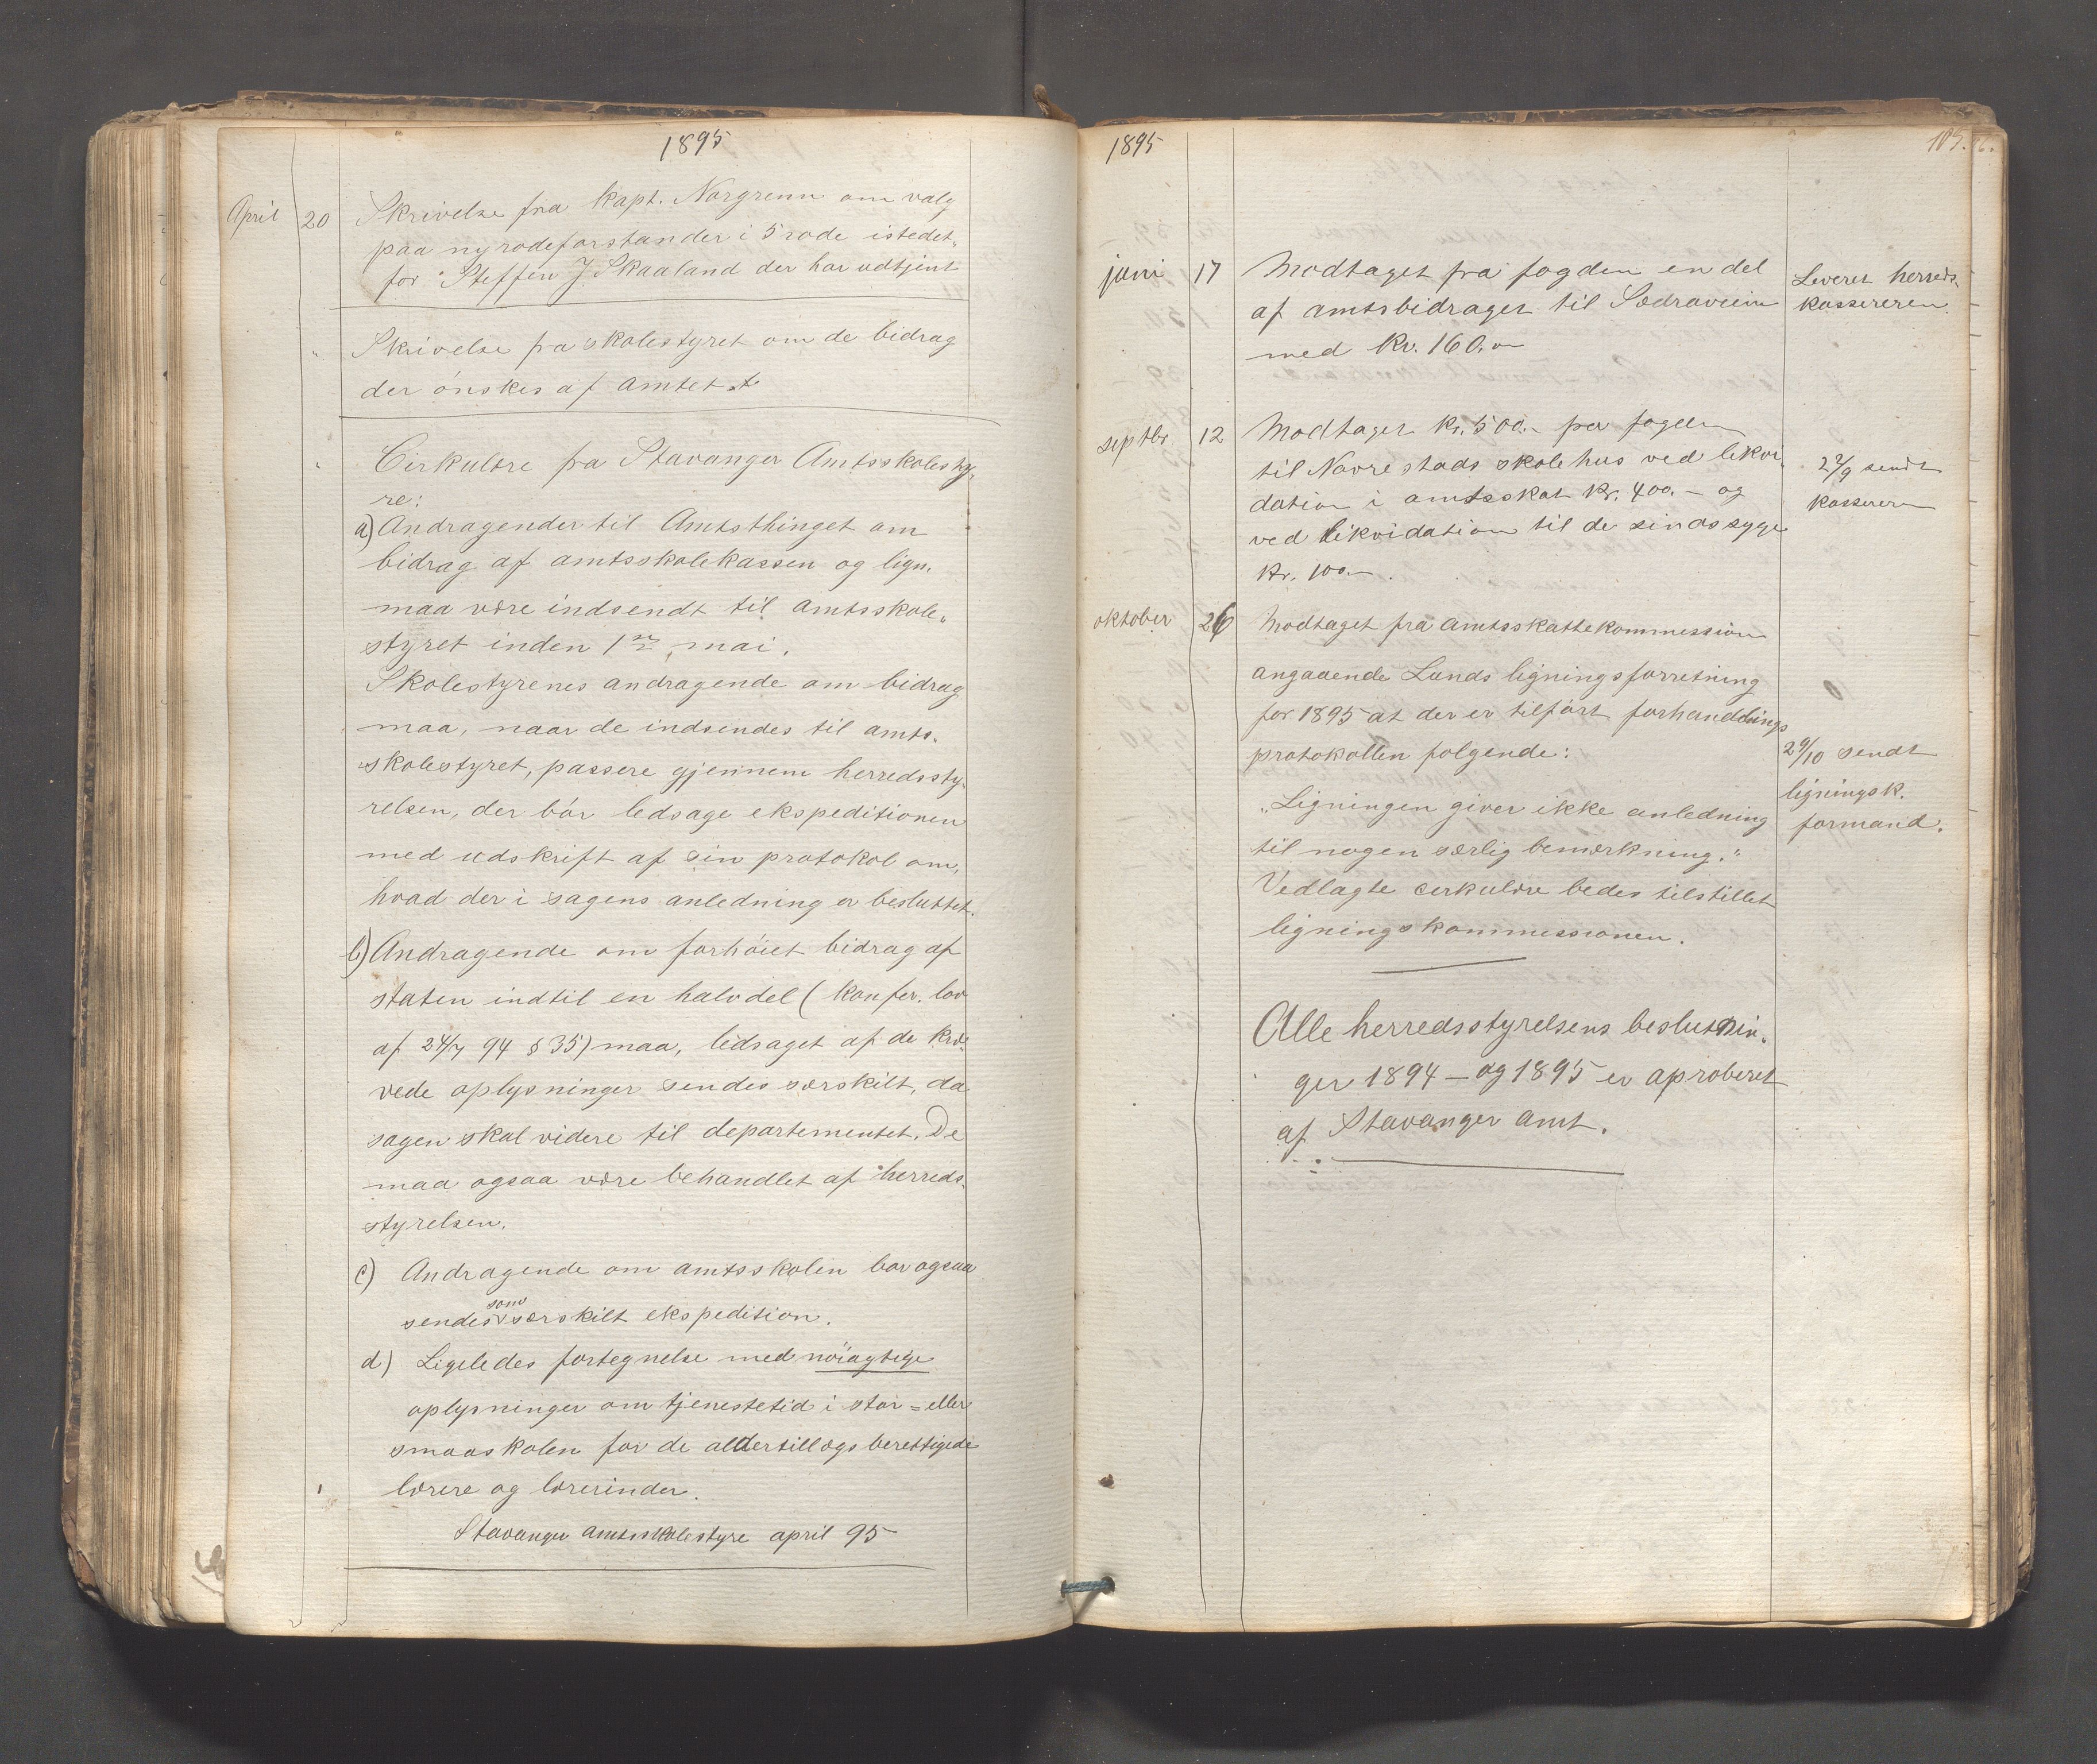 1895
April 20 Skrivelse fra Kapt. Norgrenn om valg
paa ny rodeforstander i 5 rode istedet„
for Steffen J. Skaaland der har udtjent
" Skrivelse fra skolestyret om de bidrag
der ønskes af amtet
" Cirkulære fra Stavanger Amtsskolesty„
re:
a) Andragender til Amtsthinget om
bidrag af amtsskolekassen og lign.
maa være indsendt til amtsskole„
styret inden 1ste mai.
Skolestyrenes andragende om bidrag
maa, naar de indsendes til amts„
skolestyret, passere gjennem herredssty„
relsen, der bør ledsage ekspeditionen
med udskrift af sin protokol om,
hvad der i sagens anledning er besluttet.
b) Andragende om forhøiet bidrag af
staten indtil en halvdel (konfer. lov
af 24/7 94 § 35) maa, ledsaget af de kræ„
vede oplysninger sendes særskilt, da
sagen skal videre til departementet. De
maa ogsaa være behandlet af herreds„
styrelsen.
c) Andragende om amtsskolen bør ogsaa
sendes som særskilt ekspedition.
d) Ligeledes fortegnelse med nøiagtige
oplysninger om tjenestetid i stor= eller
smaaskolen for de alderstillægsberettigede
lærere og lærerinder.
Stavanger amtsskolestyre april 95
1895
105.
juni 17 Modtaget fra fogden en del
af amtsbidraget til Sædraveien
med Kr. 160.
Leveret herreds„
kassereren.
septbr 12 Modtaget Kr. 500.- fra fogden
til Navrestads skolehus ved likvi„
dation i amtsskat Kr. 400.- og
ved likvidation til de sindssyge
Kr. 100.-
27/9 sendt
kassereren
oktober 26 Modtaget fra amtsskattekommission
angaaende Lunds ligningsforretning
for 1895 at der er tilført forhandlings
protokollen følgende:
"Ligningen giver ikke anledning
til nogen særlig bemærkning."
Vedlagte cirkulære bedes tilstillet
ligningskommissionen.
29/10 sendt
ligningsk.
formand.
Alle herredsstyrelsens beslutnin„
ger 1894 - og 1895 er aproberet
af Stavanger amt.